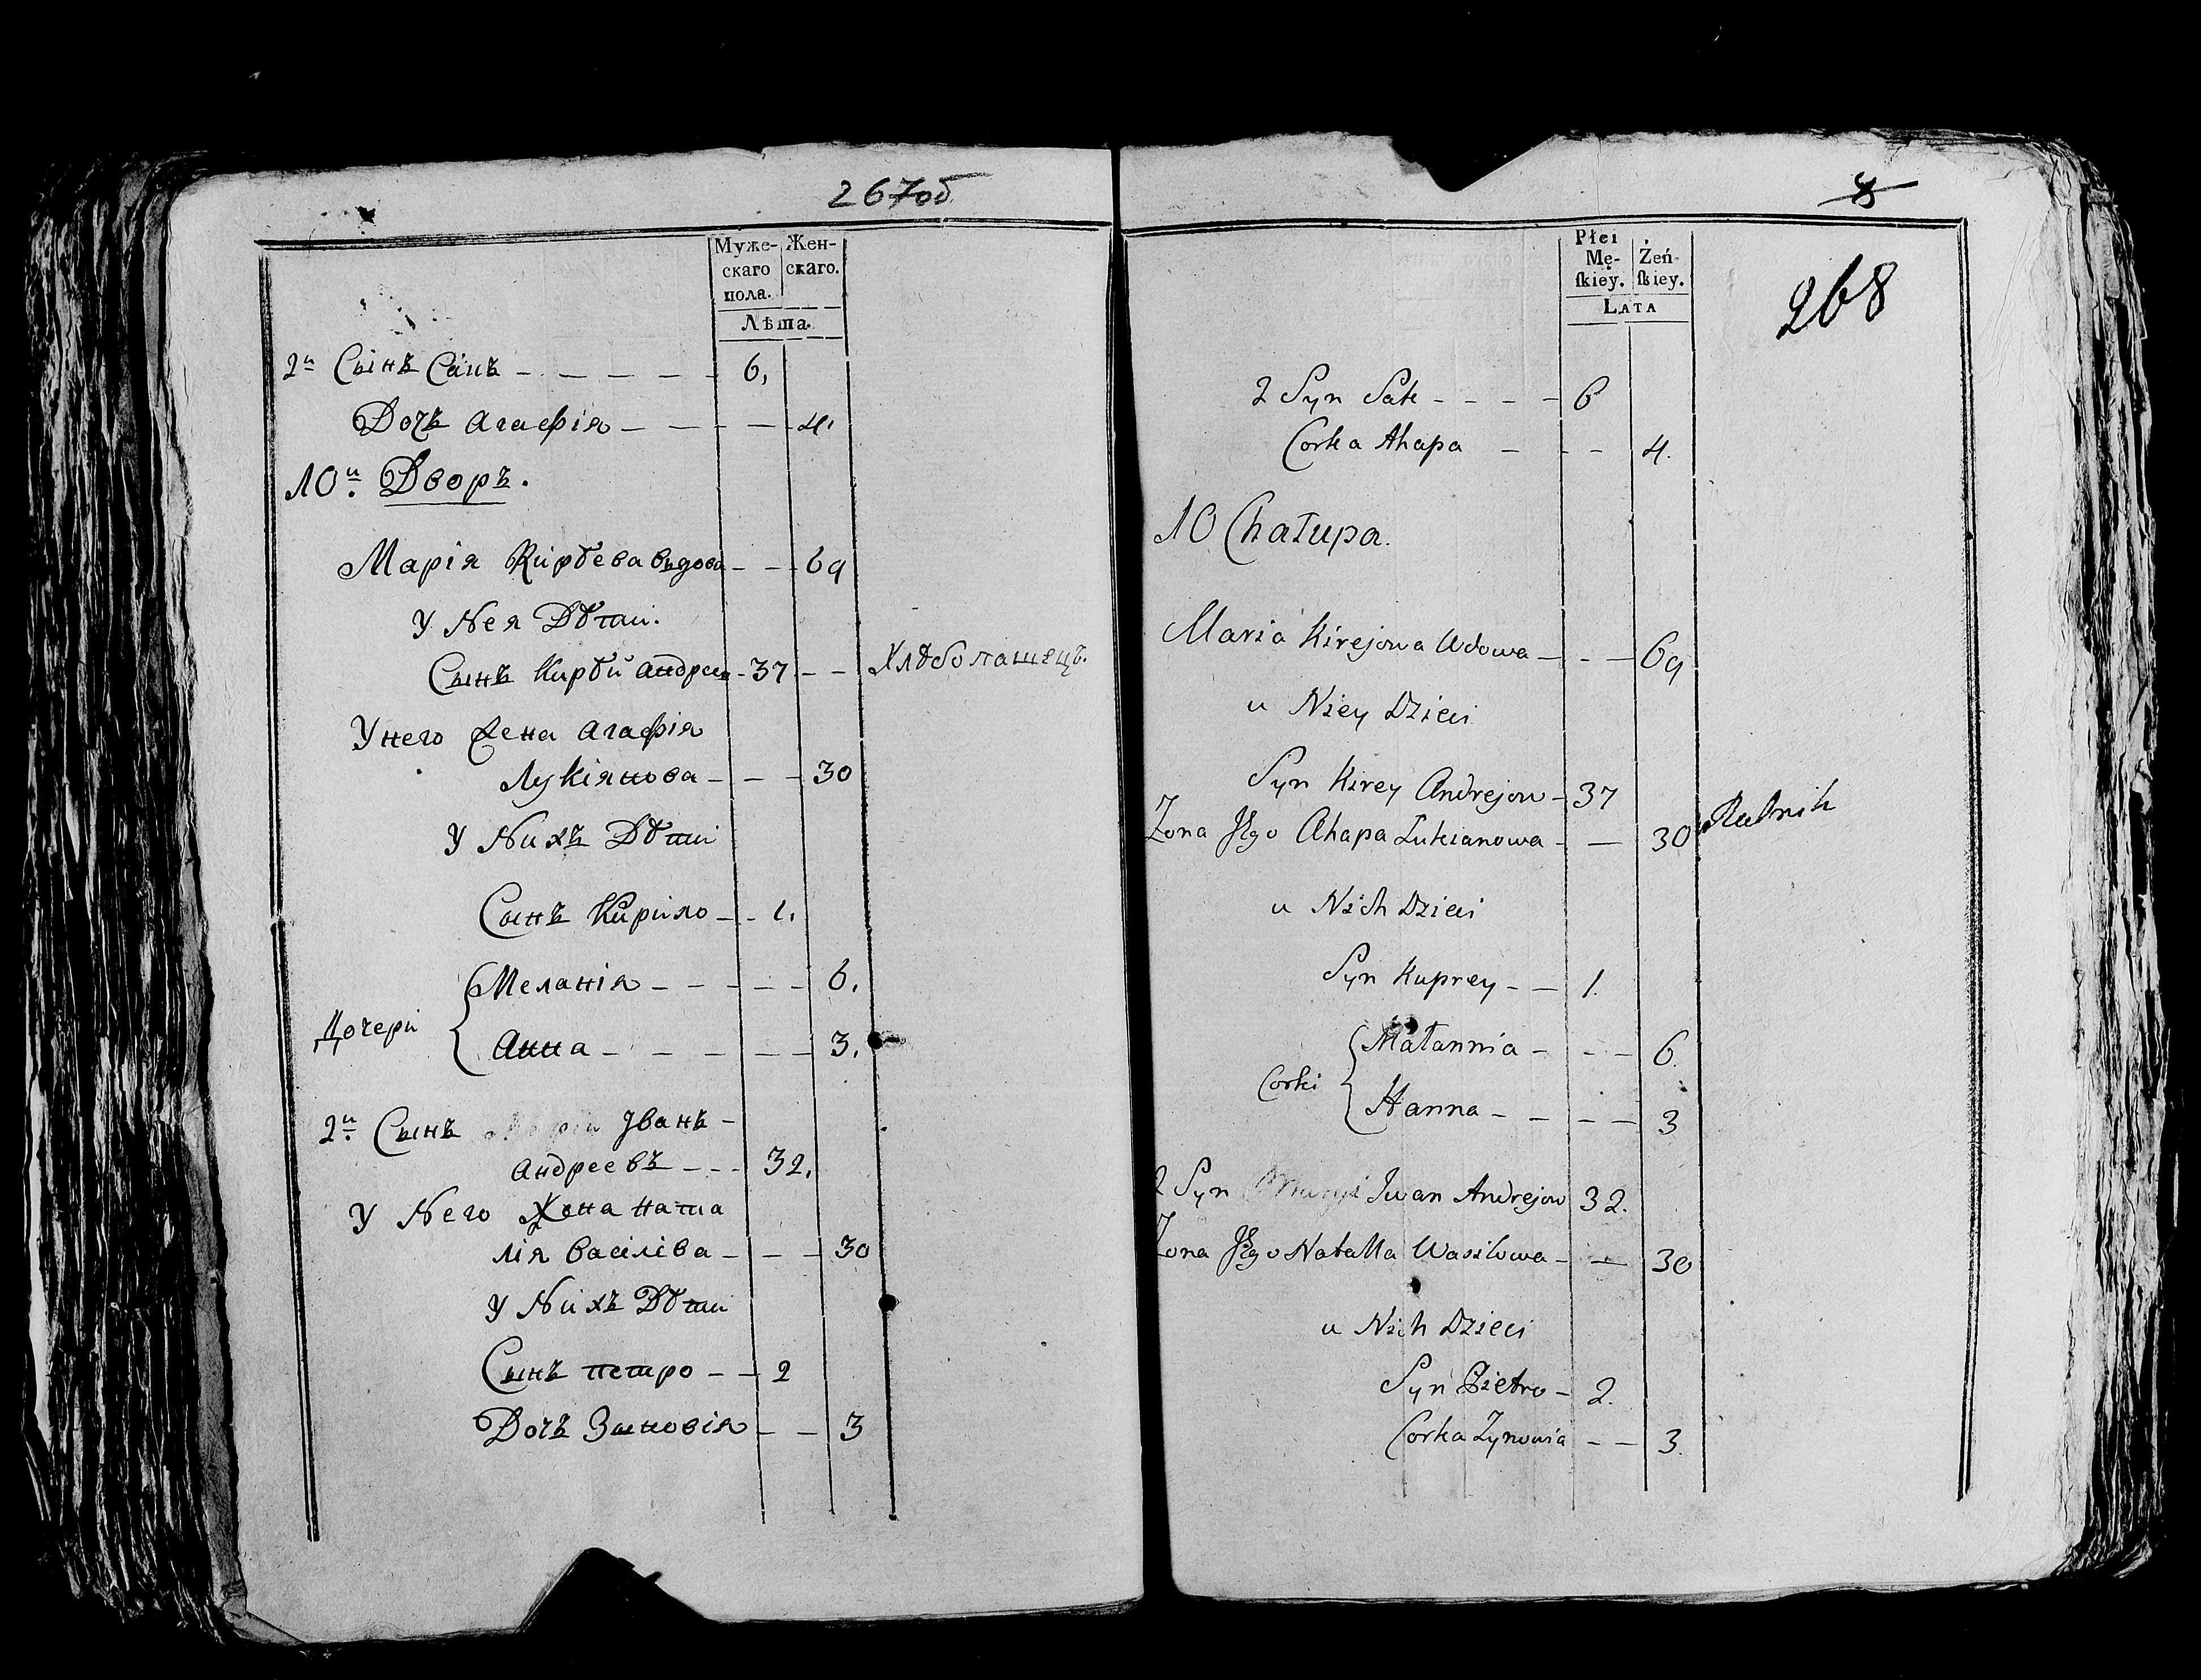 267об
Муже-
скаго
пола.
Жен-
скаго.
Лѣта.
2й Сынъ Сакъ 6,
Дочъ Агафія 4,
10й Дворъ.
Марія Кирѣева вдова 69
У Нея Дѣти.
Сынъ Кирѣй Андреев 37 Хлѣбопашецъ.
У него Жена Агафія
Лукіянова 30
У Нихъ Дѣти
Сынъ 1.
Дочери
Меланія 6.
Анна 3.
2й Сынъ Іванъ
Андреевъ 32.
У Него Жена Ната
лія Васілева 30
У Нихъ Дѣти
Сынъ Петро 2
Дочъ Зиновія 3
8
268
Płci
Mę-
ſkiey.
Żeń-
ſkiey.
LATA
2 Syn Sak 6
Corka Ahapa 4.
10 Chałupa.
Maria Kirejowa Wdowa 69
u Niey Dzieci
Syn Kirey Andrejow 37
Zona Jego Ahapa Łukianowa 30 Rolnik
u Nich Dzieci
Syn Kuprey 1.
Corki
Małannia 6.
Hanna 3
2 Syn Iwan Andrejow 32.
Zona Jego Natalla Wasilowa 30
u Nich Dzieci
Syn Pietro 2.
Corka Zynowia 3.